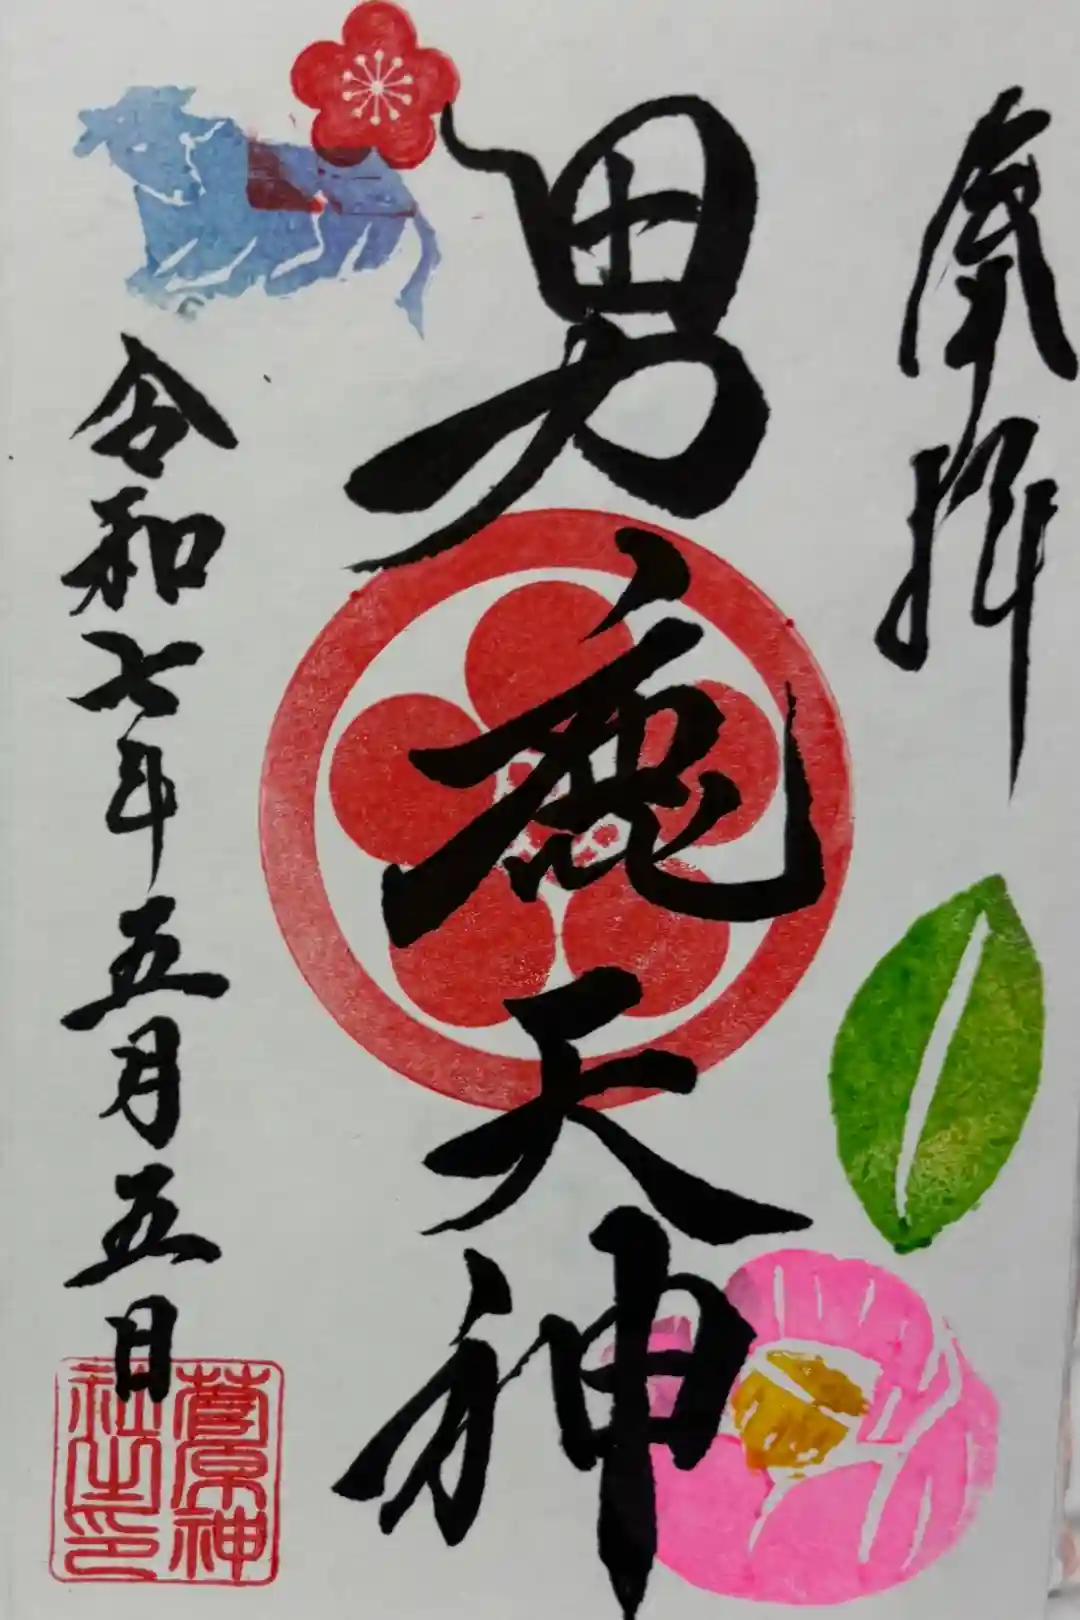 奉拝
男鹿天神
令和七年五月五日
菅原神
社之印